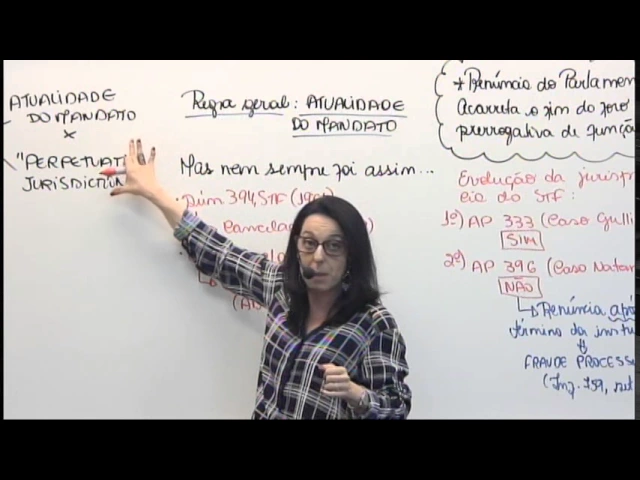 ATUALIDADE
DO MANDATO
x
"PERPETUAT
JURISDICTI
Regra geral: ATUALIDADE
DO MANDATO
Mas nem sempre foi assim...
• Súm 394, STF (19
Cancela
(A
* Renúncia do Parlamen
Acarreta o fim do foro
prerrogativa de função
Evolução da jurispr
cia do STF:
1º) AP 333 (Caso
SIM
2º) AP 396 (Caso Natan
NÃO
Renúncia após
término da instru
FRAUDE PROCESS
(Inf. 759,